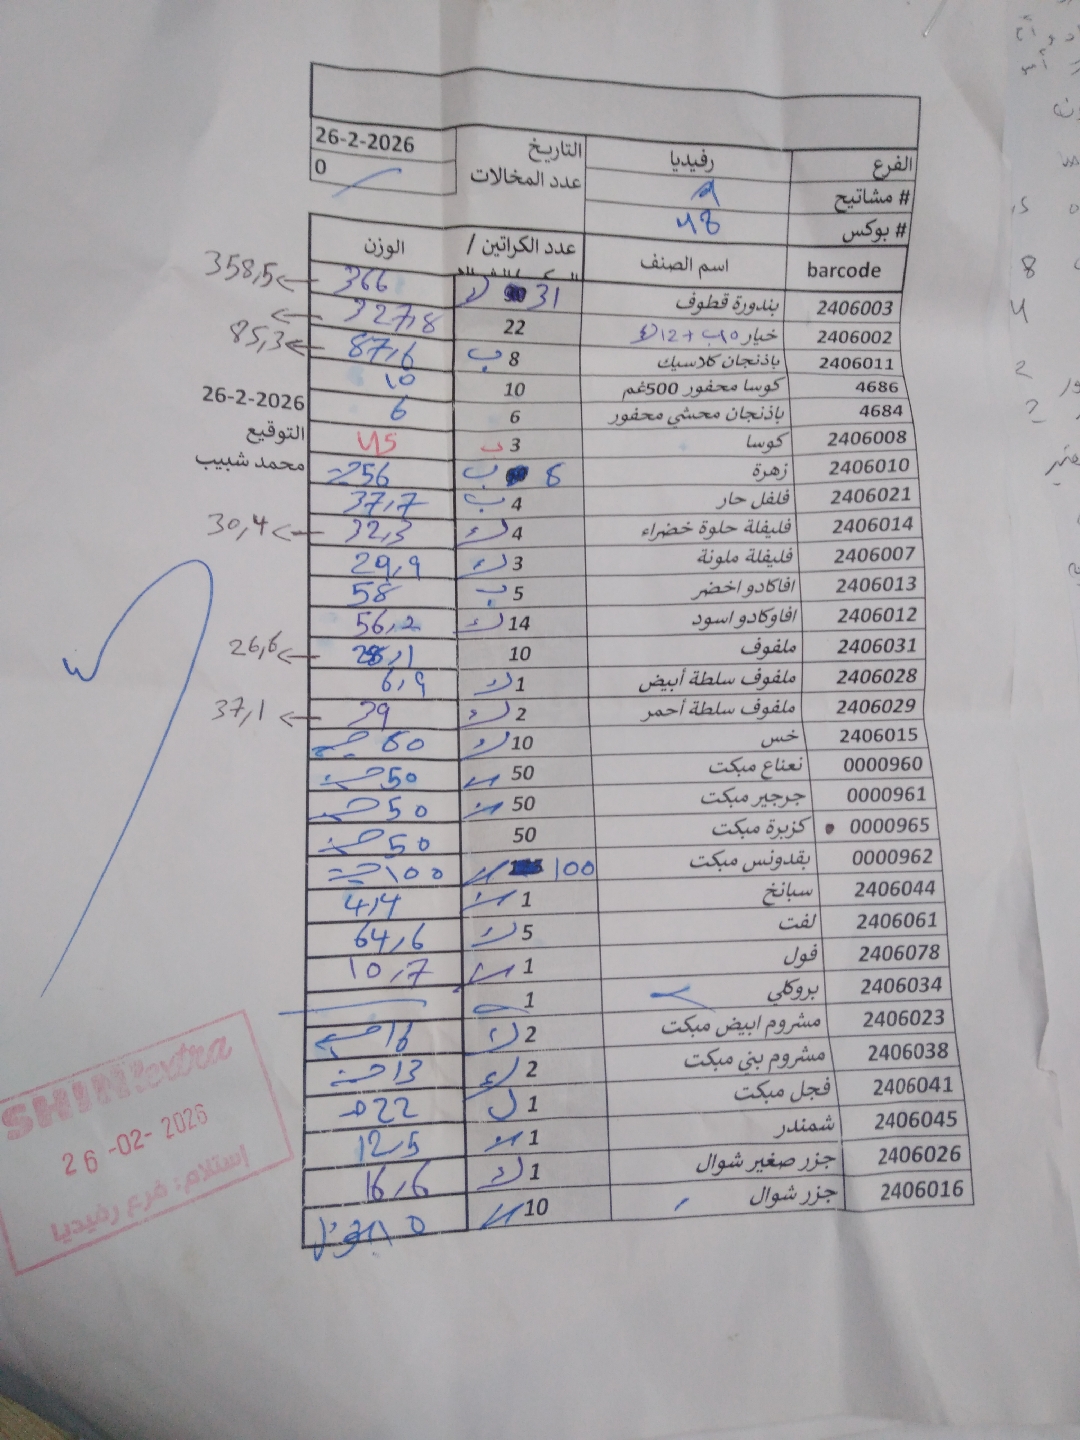 التاريخ 26-2-2026
عدد المخالات 0
الفرع رفيديا
# مشاتيح 9
# بوكس 48
barcode اسم الصنف عدد الكراتين / الوزن
2406003 بندورة قطوف 31 ك 366 ← 358,5
2406002 خيار 10ب + 12ك 22 327,8 ←
2406011 باذنجان كلاسيك 8 ب 87,6 ← 85,3
4686 كوسا محفور 500غم 10 10
4684 باذنجان محشي محفور 6 6
2406008 كوسا 3 ب 45
2406010 زهرة 8 ب 56 حبة
2406021 فلفل حار 4 ب 37,7
2406014 فليفلة حلوة خضراء 4 ك 32,3 ← 30,4
2406007 فليفلة ملونة 3 ك 29,9
2406013 افاكادو اخضر 5 ب 58
2406012 افاوكادو اسود 14 ك 56,2
2406031 ملفوف 10 28,1 ← 26,6
2406028 ملفوف سلطة أبيض 1 ك 6,9
2406029 ملفوف سلطة أحمر 2 ك 39 ← 37,1
2406015 خس 10 ك 60 حبة
0000960 نعناع مبكت 50 50 حبة
0000961 جرجير مبكت 50 50 حبة
0000965 كزبرة مبكت 50 50 حبة
0000962 بقدونس مبكت 100 100 حبة
2406044 سبانخ 1 4,4
2406061 لفت 5 ك 64,6
2406078 فول 1 10,7
2406034 بروكلي 1
2406023 مشروم ابيض مبكت 2 ك 16 حبة
2406038 مشروم بني مبكت 2 ك 13 حبة
2406041 فجل مبكت 1 ك 22
2406045 شمندر 1 12,5
2406026 جزر صغير شوال 1 ك 16,6
2406016 جزر شوال 10
26-2-2026
التوقيع
محمد شبيب
SHINI extra
26-02-2026
إستلام: فرع رفيديا